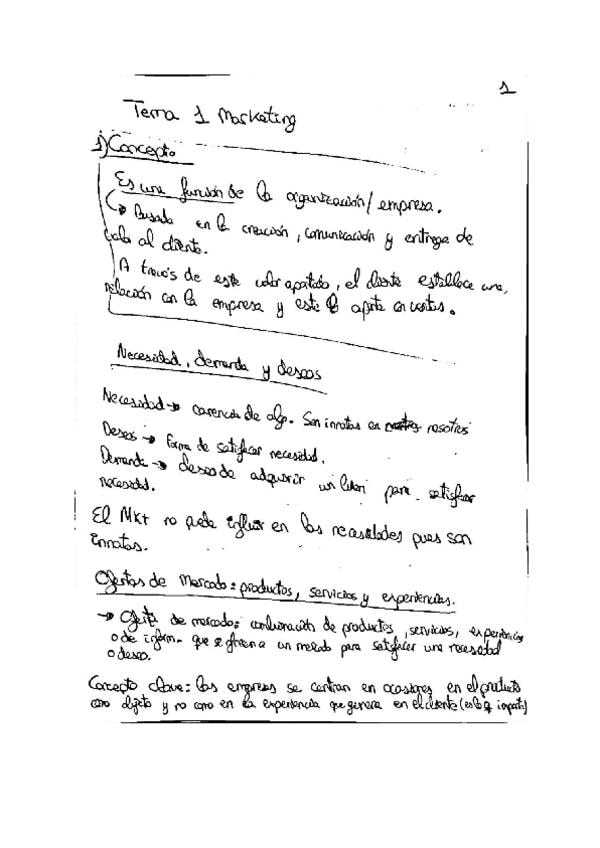 1
Tema 1 Marketing
1) Concepto
Es una función de la organización/empresa.
Basada en la creación, comunicación y entrega de
valor al cliente.
A través de este valor aportado, el cliente establece una
relación con la empresa y este le aporta con ventas.
Necesidad, demanda y deseos
Necesidad → carencia de algo. Son innatas en nosotros
Deseos → Forma de satisfacer necesidad.
Demanda → deseo de adquirir un bien para satisfacer
necesidad.
El Mkt no puede influir en las necesidades pues son
innatas.
Ofertas de mercado: productos, servicios y experiencias.
→ Oferta de mercado: combinación de productos, servicios, experiencias
o de inform. que se ofrecen a un mercado para satisfacer una necesidad
o deseo.
Concepto clave: las empresas se centran en ocasiones en el producto
como objeto y no como en la experiencia que genera en el cliente (es lo q importa)